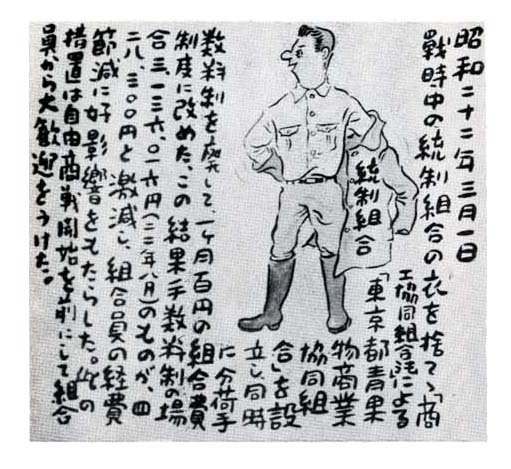 昭和二十二年三月一日
戰時中の統制組合の衣を捨て、「商
工協同組合法」による
「東京都青果
物商業
協同組
合」を設
立し同時
に分荷手
数料制を廃して、一ヶ月百円の組合費
制度に改めた、この結果手数料制の場
合三、一三六、〇一六円(二二年八月)のものが、四
二八、三〇〇円と激減し、組合員の経費
節減に好影響をもたらした。此の
措置は自由商戦開始を前にして組合
員から大歓迎をうけた。
統制組合